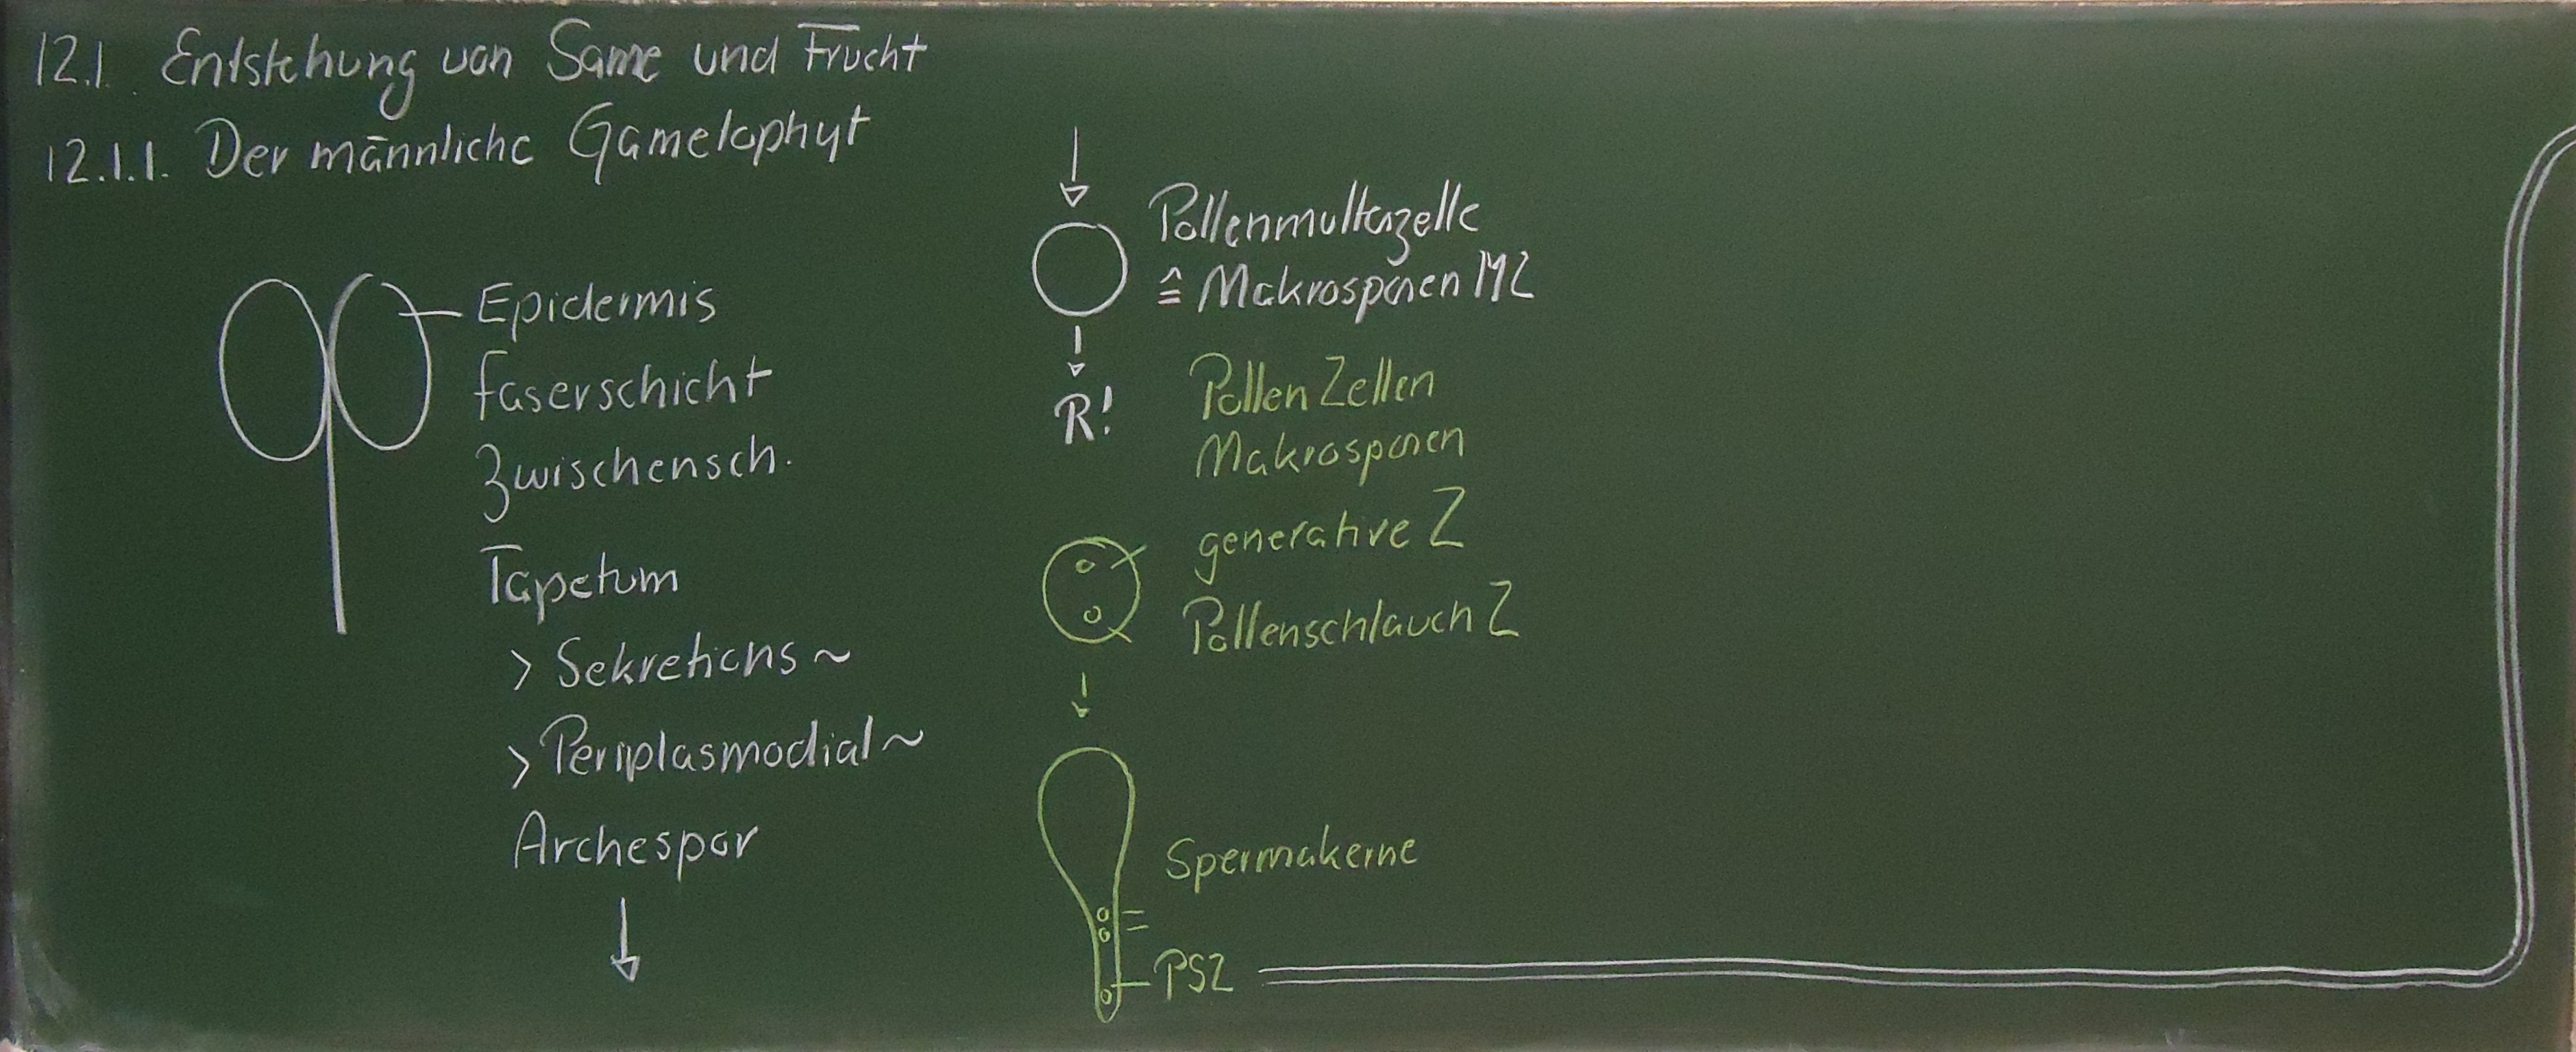 12.1. Entstehung von Same und Frucht
12.1.1. Der männliche Gametophyt
Epidermis
Faserschicht
Zwischensch.
Tapetum
> Sekretions ~
> Periplasmodial ~
Archespor
Pollenmutterzelle
≙ Makrosporen MZ
R!
Pollen Zellen
Makrosporen
generative Z
Pollenschlauch Z
Spermakerne
PSZ